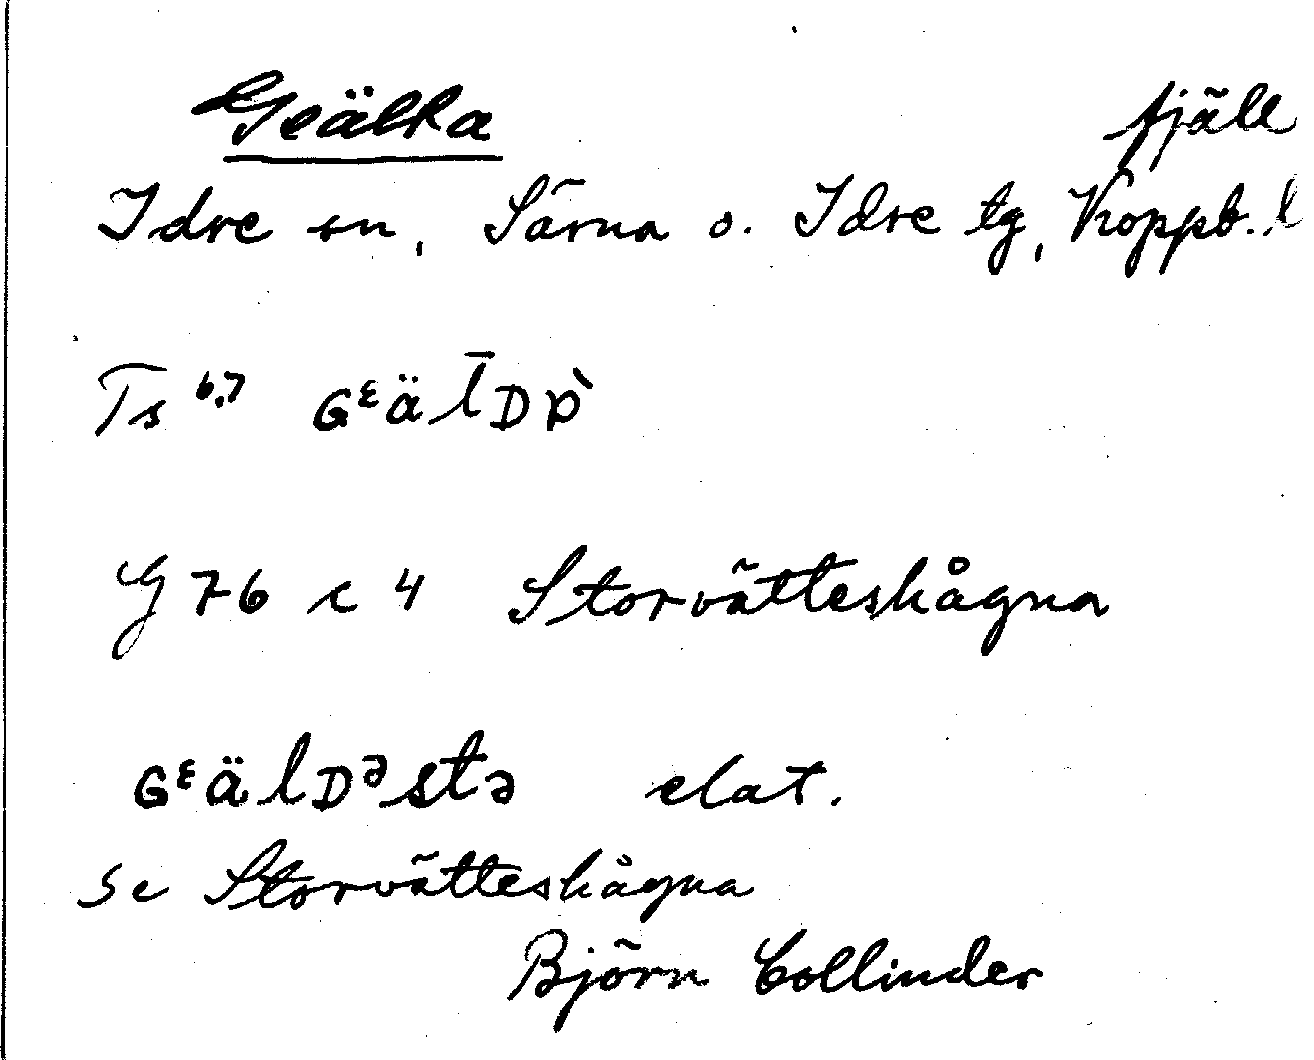 Geälta fjäll
Idre sn, Särna o. Idre tg, Koppb. l
Ts 6,7 Gᵋäl̅Dɒ̀
G 76 c 4 Storvätteshågna
GᵋälDᵊstə elat.
Se Storvätteshågna
Björn Collinder